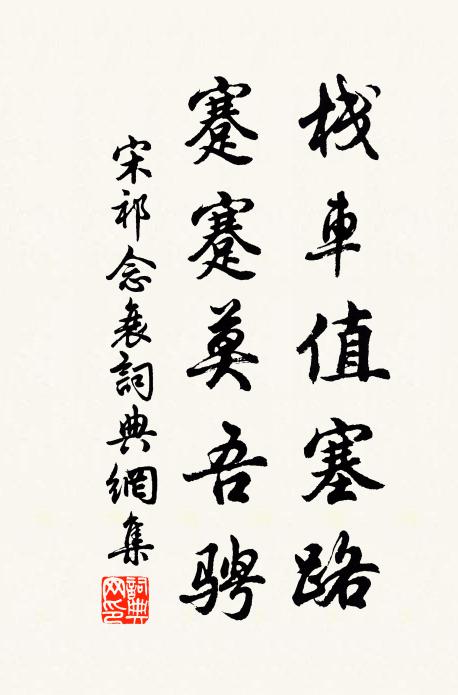 栈車值塞路
蹇蹇莫吾骋
宋祁念衰詞典網集
詞典网印